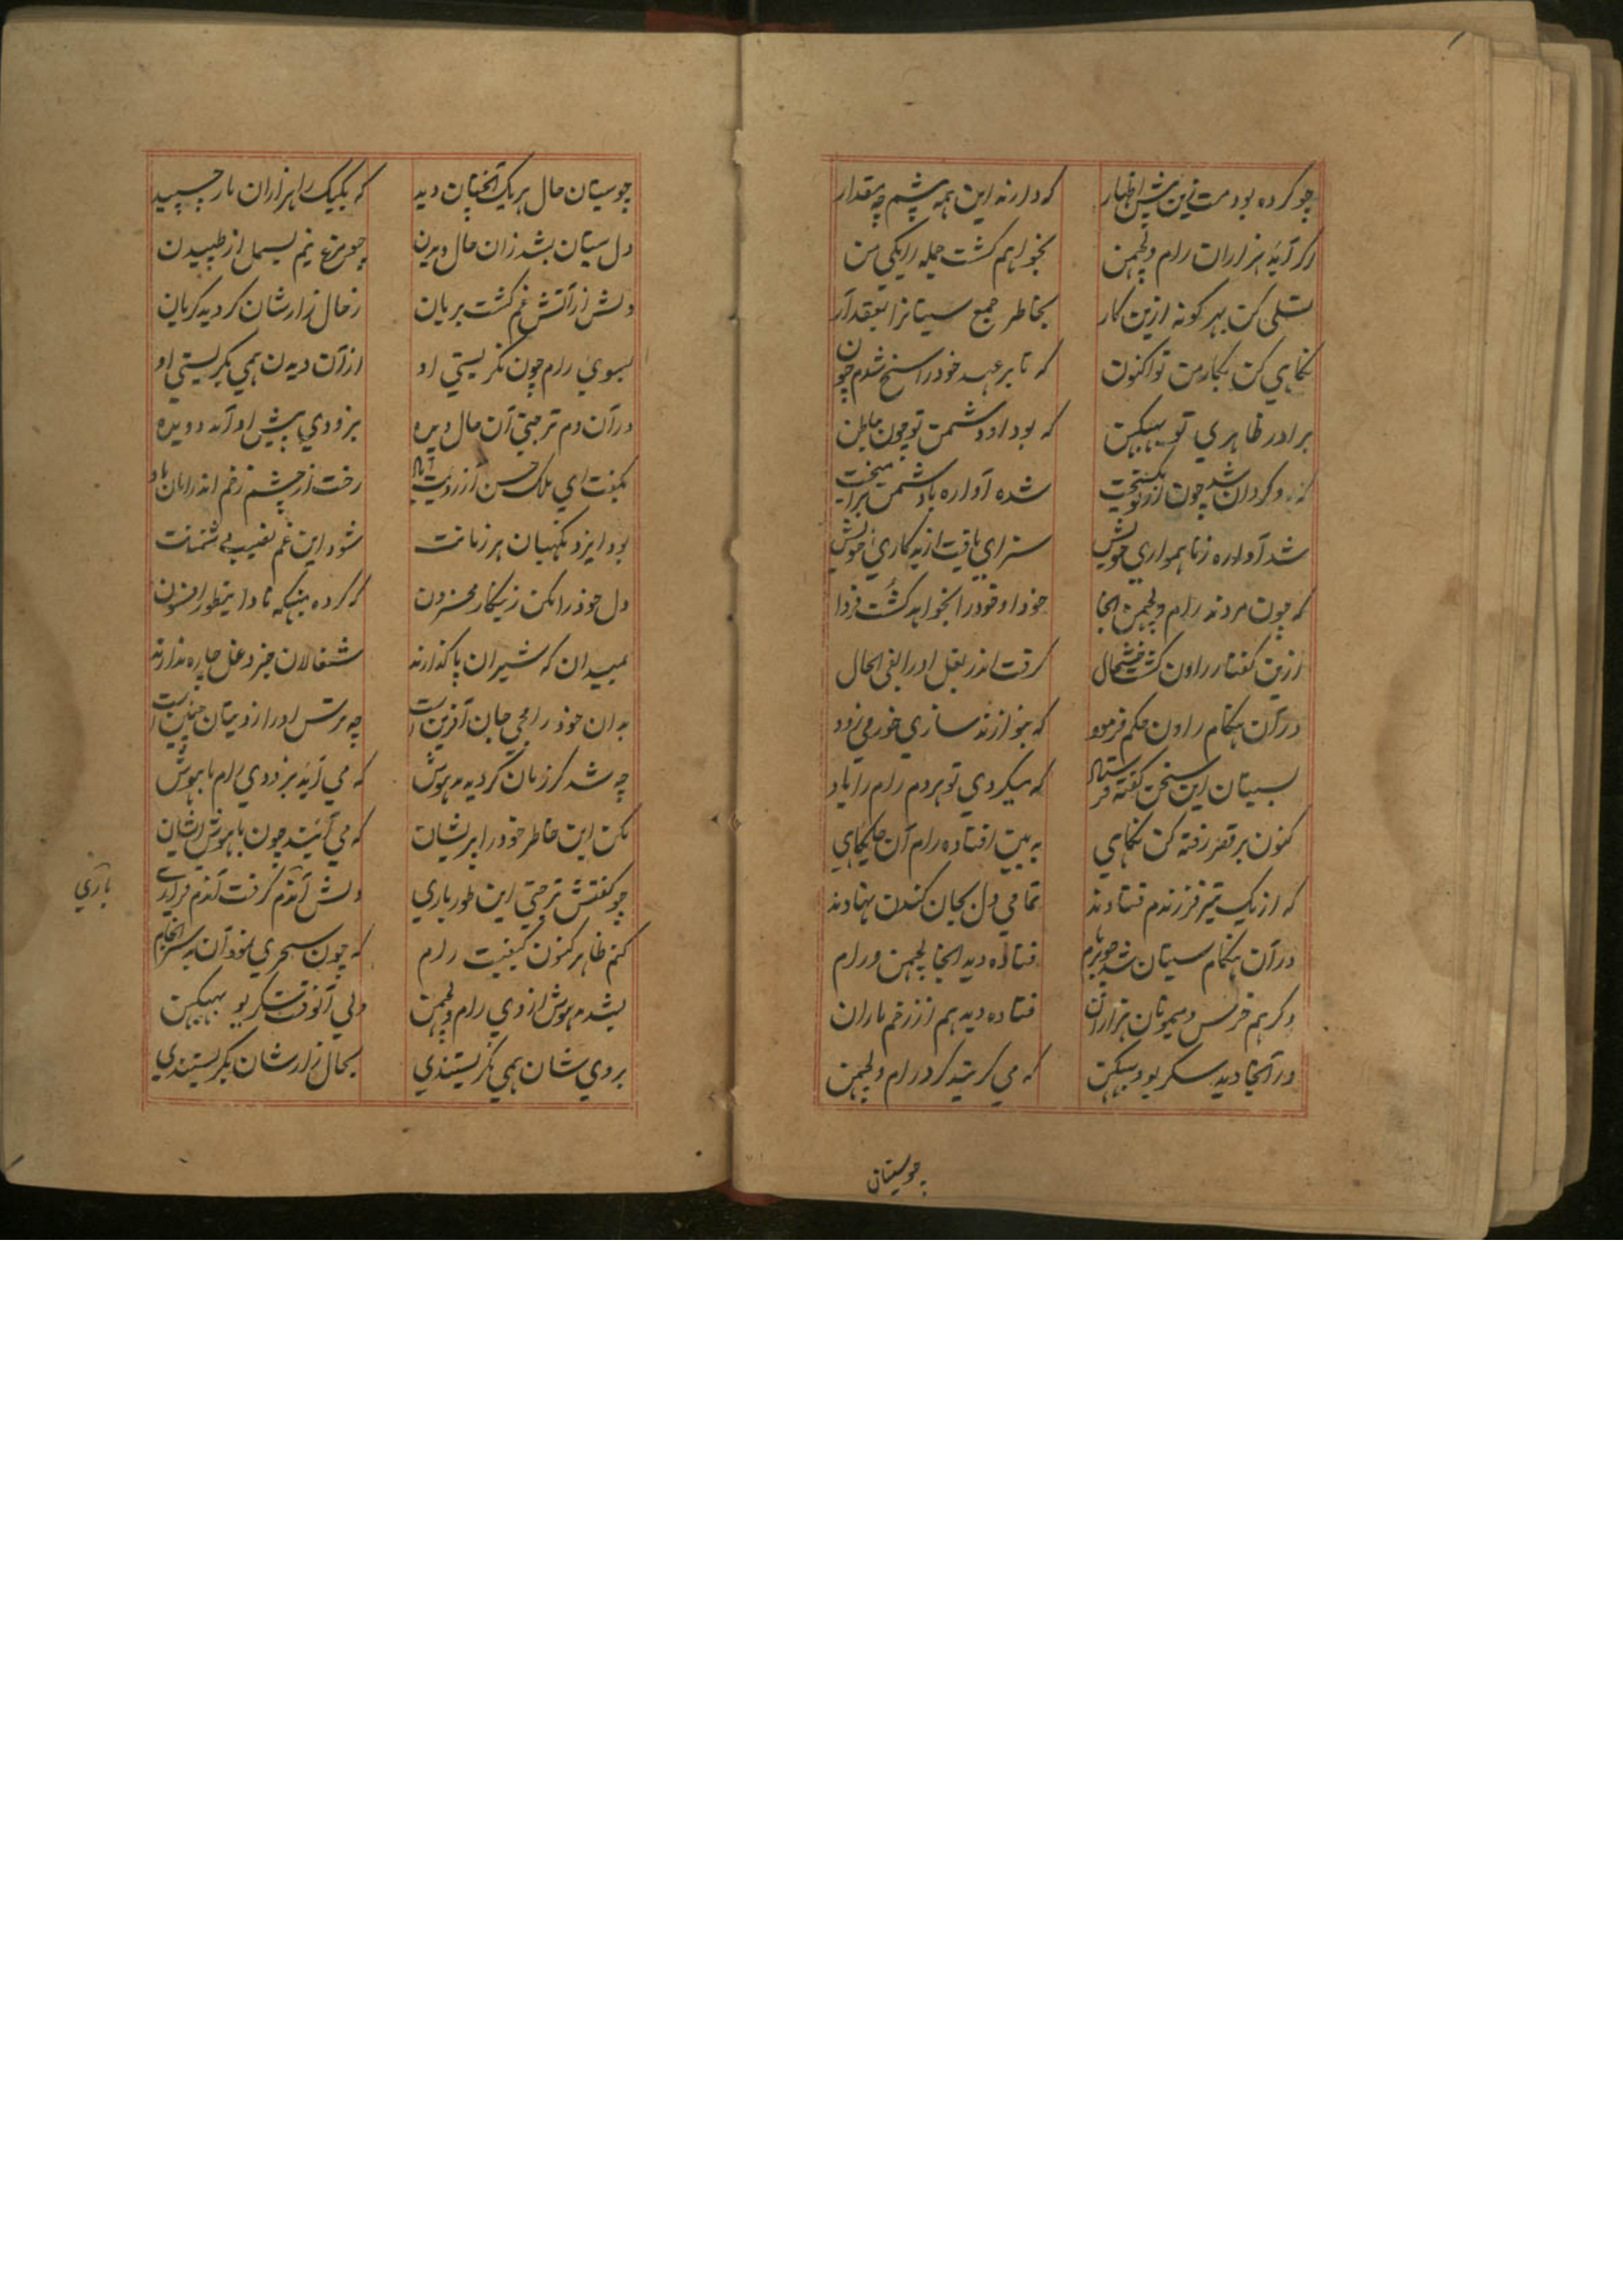 چو کرده بودمت زین پیش اظهار
که دارند این همه پشم چه مقدار
اگر آید هزاران رام و لچمن
نخواهم گشت جمله را یکی من
تسلی کن بهر گونه ازین کار
بخاطر جمع سیتا را بعقد آر
نگاهی کن بکار من تو اکنون
که تا بر عهد خود راسخ شدم چون
برادر ظاهری تو ببهیکن
که بود او دشمن تو چون باطن
که رو گردان شد چون از تو
شده آواره با دشمن
شد آواره ز ناهمواری خویش
سزای یافت از بدکاری خویش
که چون مردند رام و لچمن اینجا
خود او خود را نخواهد گشت فردا
ازین گفتار راون گشت خوشحال
گرفت اندر بغل او را بفی الحال
در آن هنگام راون حکم فرمود
که بنوازند سازی خورمی زود
بسیتان این سخن گفته فرستاد
که میکردی تو هر دم رام را یاد
کنون بر قصر رفته کن نگاهی
به بین افتاده رام آن جایگاهی
که از یک تیر فرزندم فتادند
تمامی دل بجان کندن نهادند
در آن هنگام سیتان شد چو بر بام
فتاده دید آنجا لچمن و رام
دگر هم خرس و میمونان هزاران
فتاده دید هم از زخم ماران
در آنجا دید سکریو و ببیکن
که می گریند گرد رام و لچمن
چو سیتان
چو سیتان حال هر یک آنچنان دید
که یکیک را هزاران مار چسپید
دل سیتان بشد زان حال دیدن
چو مرغ نیم بسمل از طپیدن
دلش از آتش غم گشت بریان
ز حال زارشان گردید گریان
بسوی رام چون نگریستی او
از آن دیدن همی بگریستی او
در آن دم ترجتی آن حال دیده
بزودی پیش او آمد دویده
بگفت ای ملک حسن از رویت آباد
رخت از چشم زخم اندر امان باد
بود ایزد نگهبان هر زمانت
شود این غم نصیب دشمنانت
دل خود را مکن زینکار محزون
که کرده میکه نادا اینطور افسون
بمیدان که شیران پا گذارند
شغالان جز دغل چاره ندارند
به آن خود رامجی جان آفرین است
چه ترس او را ز دیبتان چنین است
چه شد گر زمان گردید مدهوش
که می آید بزودی رام با هوش
مکن این خاطر خود را پریشان
که می آیند چون با هوش ایشان
چو گفتش ترجتی این طور باری
دلش آندم گرفت آندم قراری
باری
کنم ظاهر کنون کیفیت رام
که چون سحری نمود آن بد سرانجام
بشد هوش از وی رام و لچمن
ولی آنوقت سکریو ببیکن
بروی شان همی نگریستندی
بحال زارشان بگریستندی